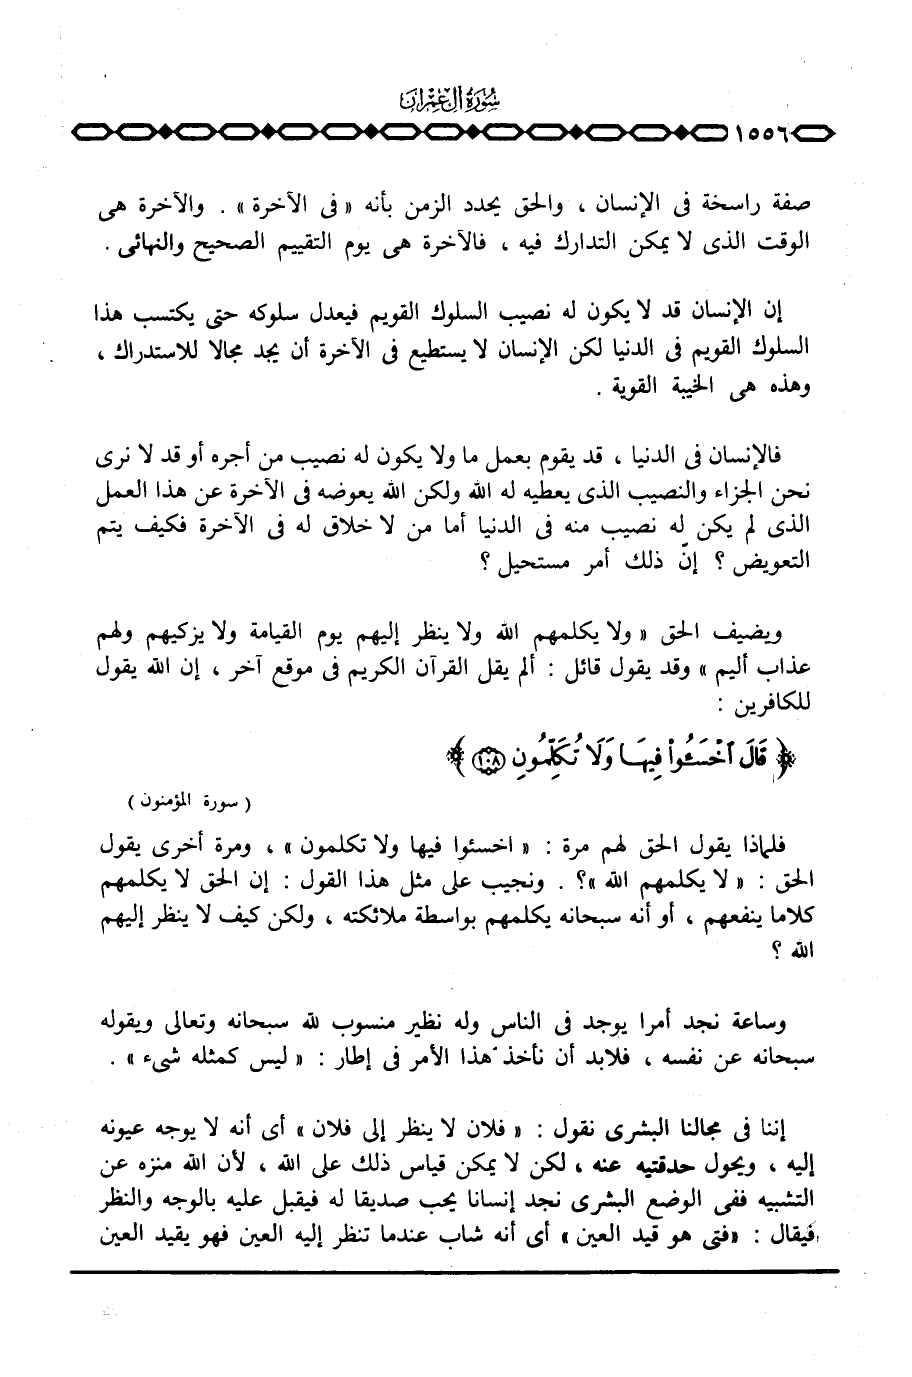 سورة آل عمران
١٥٥٦
صفة راسخة فى الإنسان ، والحق يحدد الزمن بأنه « فى الآخرة » . والآخرة هى
الوقت الذى لا يمكن التدارك فيه ، فالآخرة هى يوم التقييم الصحيح والنهائى .
إن الإنسان قد لا يكون له نصيب السلوك القويم فيعدل سلوكه حتى يكتسب هذا
السلوك القويم فى الدنيا لكن الإنسان لا يستطيع فى الآخرة أن يجد مجالا للاستدراك ،
وهذه هى الخيبة القوية .
فالإنسان فى الدنيا ، قد يقوم بعمل ما ولا يكون له نصيب من أجره أو قد لا نرى
نحن الجزاء والنصيب الذى يعطيه له الله ولكن الله يعوضه فى الآخرة عن هذا العمل
الذى لم يكن له نصيب منه فى الدنيا أما من لا خلاق له فى الآخرة فكيف يتم
التعويض ؟ إنّ ذلك أمر مستحيل ؟
ويضيف الحق « ولا يكلمهم الله ولا ينظر إليهم يوم القيامة ولا يزكيهم ولهم
عذاب أليم » وقد يقول قائل : ألم يقل القرآن الكريم فى موقع آخر ، إن الله يقول
للكافرين :
﴿ قَالَ ٱخْسَـُٔوا۟ فِيهَا وَلَا تُكَلِّمُونِ ١٠٨ ﴾
( سورة المؤمنون )
فلماذا يقول الحق لهم مرة : « اخسئوا فيها ولا تكلمون » ، ومرة أخرى يقول
الحق : « لا يكلمهم الله »؟ . ونجيب على مثل هذا القول : إن الحق لا يكلمهم
كلاما ينفعهم ، أو أنه سبحانه يكلمهم بواسطة ملائكته ، ولكن كيف لا ينظر إليهم
الله ؟
وساعة نجد أمرا يوجد فى الناس وله نظير منسوب لله سبحانه وتعالى ويقوله
سبحانه عن نفسه ، فلابد أن نأخذ هذا الأمر فى إطار : « ليس كمثله شىء » .
إننا فى مجالنا البشرى نقول : « فلان لا ينظر إلى فلان » أى أنه لا يوجه عيونه
إليه ، ويحول حدقتيه عنه ، لكن لا يمكن قياس ذلك على الله ، لأن الله منزه عن
التشبيه ففى الوضع البشرى نجد إنسانا يحب صديقا له فيقبل عليه بالوجه والنظر
فيقال : «فتى هو قيد العين» أى أنه شاب عندما تنظر إليه العين فهو يقيد العين